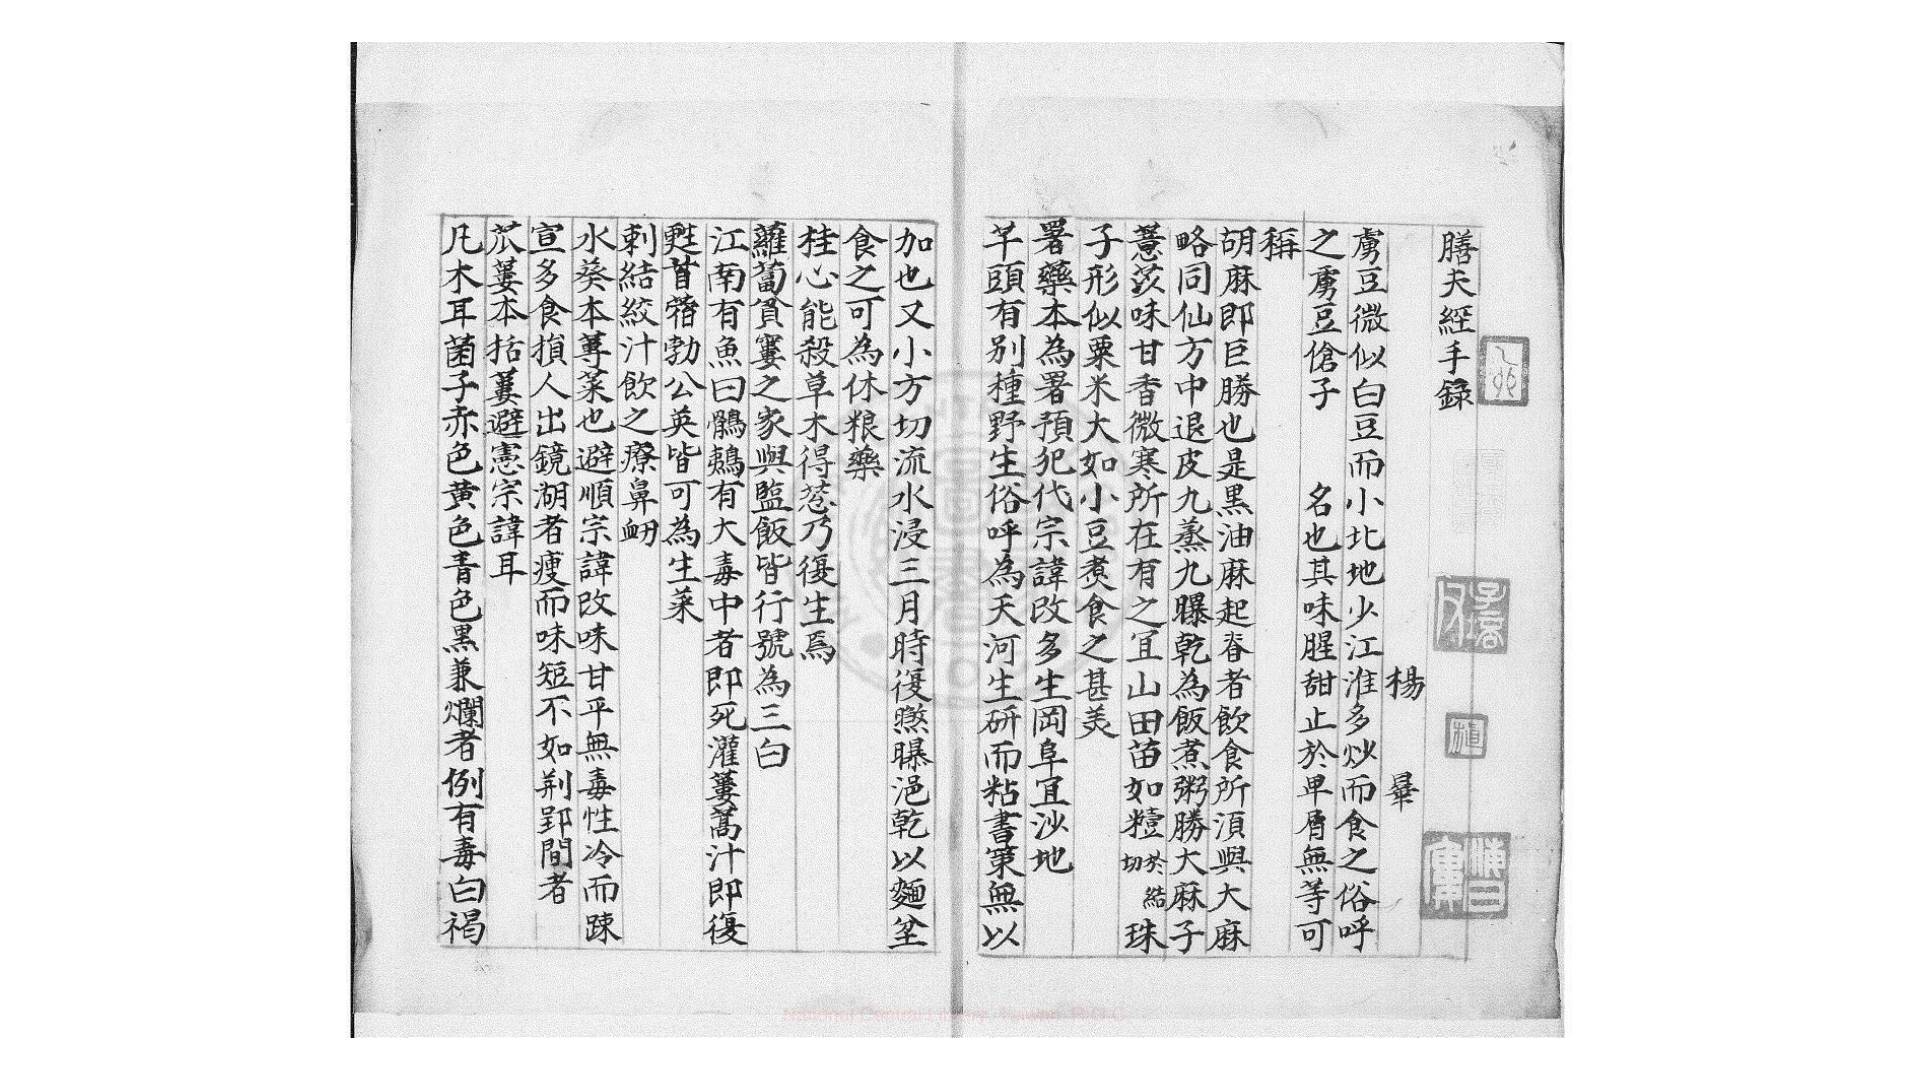 膳夫經手錄
楊 曅
虜豆微似白豆而小北地少江淮多炒而食之俗呼
之虜豆傖子 名也其味腥甜止於卑屑無等可
稱
胡麻即巨勝也是黑油麻起脊者飲食所湏與大麻
略同仙方中退皮九蒸九曝乾為飯煮粥勝大麻子
薏苡味甘香微寒所在有之宜山田苗如𥽦切於結珠
子形似粟米大如小豆煑食之甚美
署藥本為署預犯代宗諱改多生岡阜宜沙地
芊頭有别種野生俗呼為天河生研而粘書策無以
加也又小方切流水浸三月時復㷊曝浥乾以麵坌
食之可為休粮藥
桂心能殺草木得葱乃復生焉
蘿蔔貧寠之家與監飯皆行號為三白
江南有魚曰鶻鷞有大毒中者即死灌蔞蒿汁即復
甦苜蓿勃公英皆可為生菜
刺結絞汁飲之療鼻衂
水葵本蓴菜也避順宗諱改味甘平無毒性冷而踈
宣多食損人出鏡湖者瘦而味短不如荊郢間者
苽蔞本括蔞避憲宗諱耳
凡木耳菌子赤色黄色青色黒兼爛者例有毒白褐